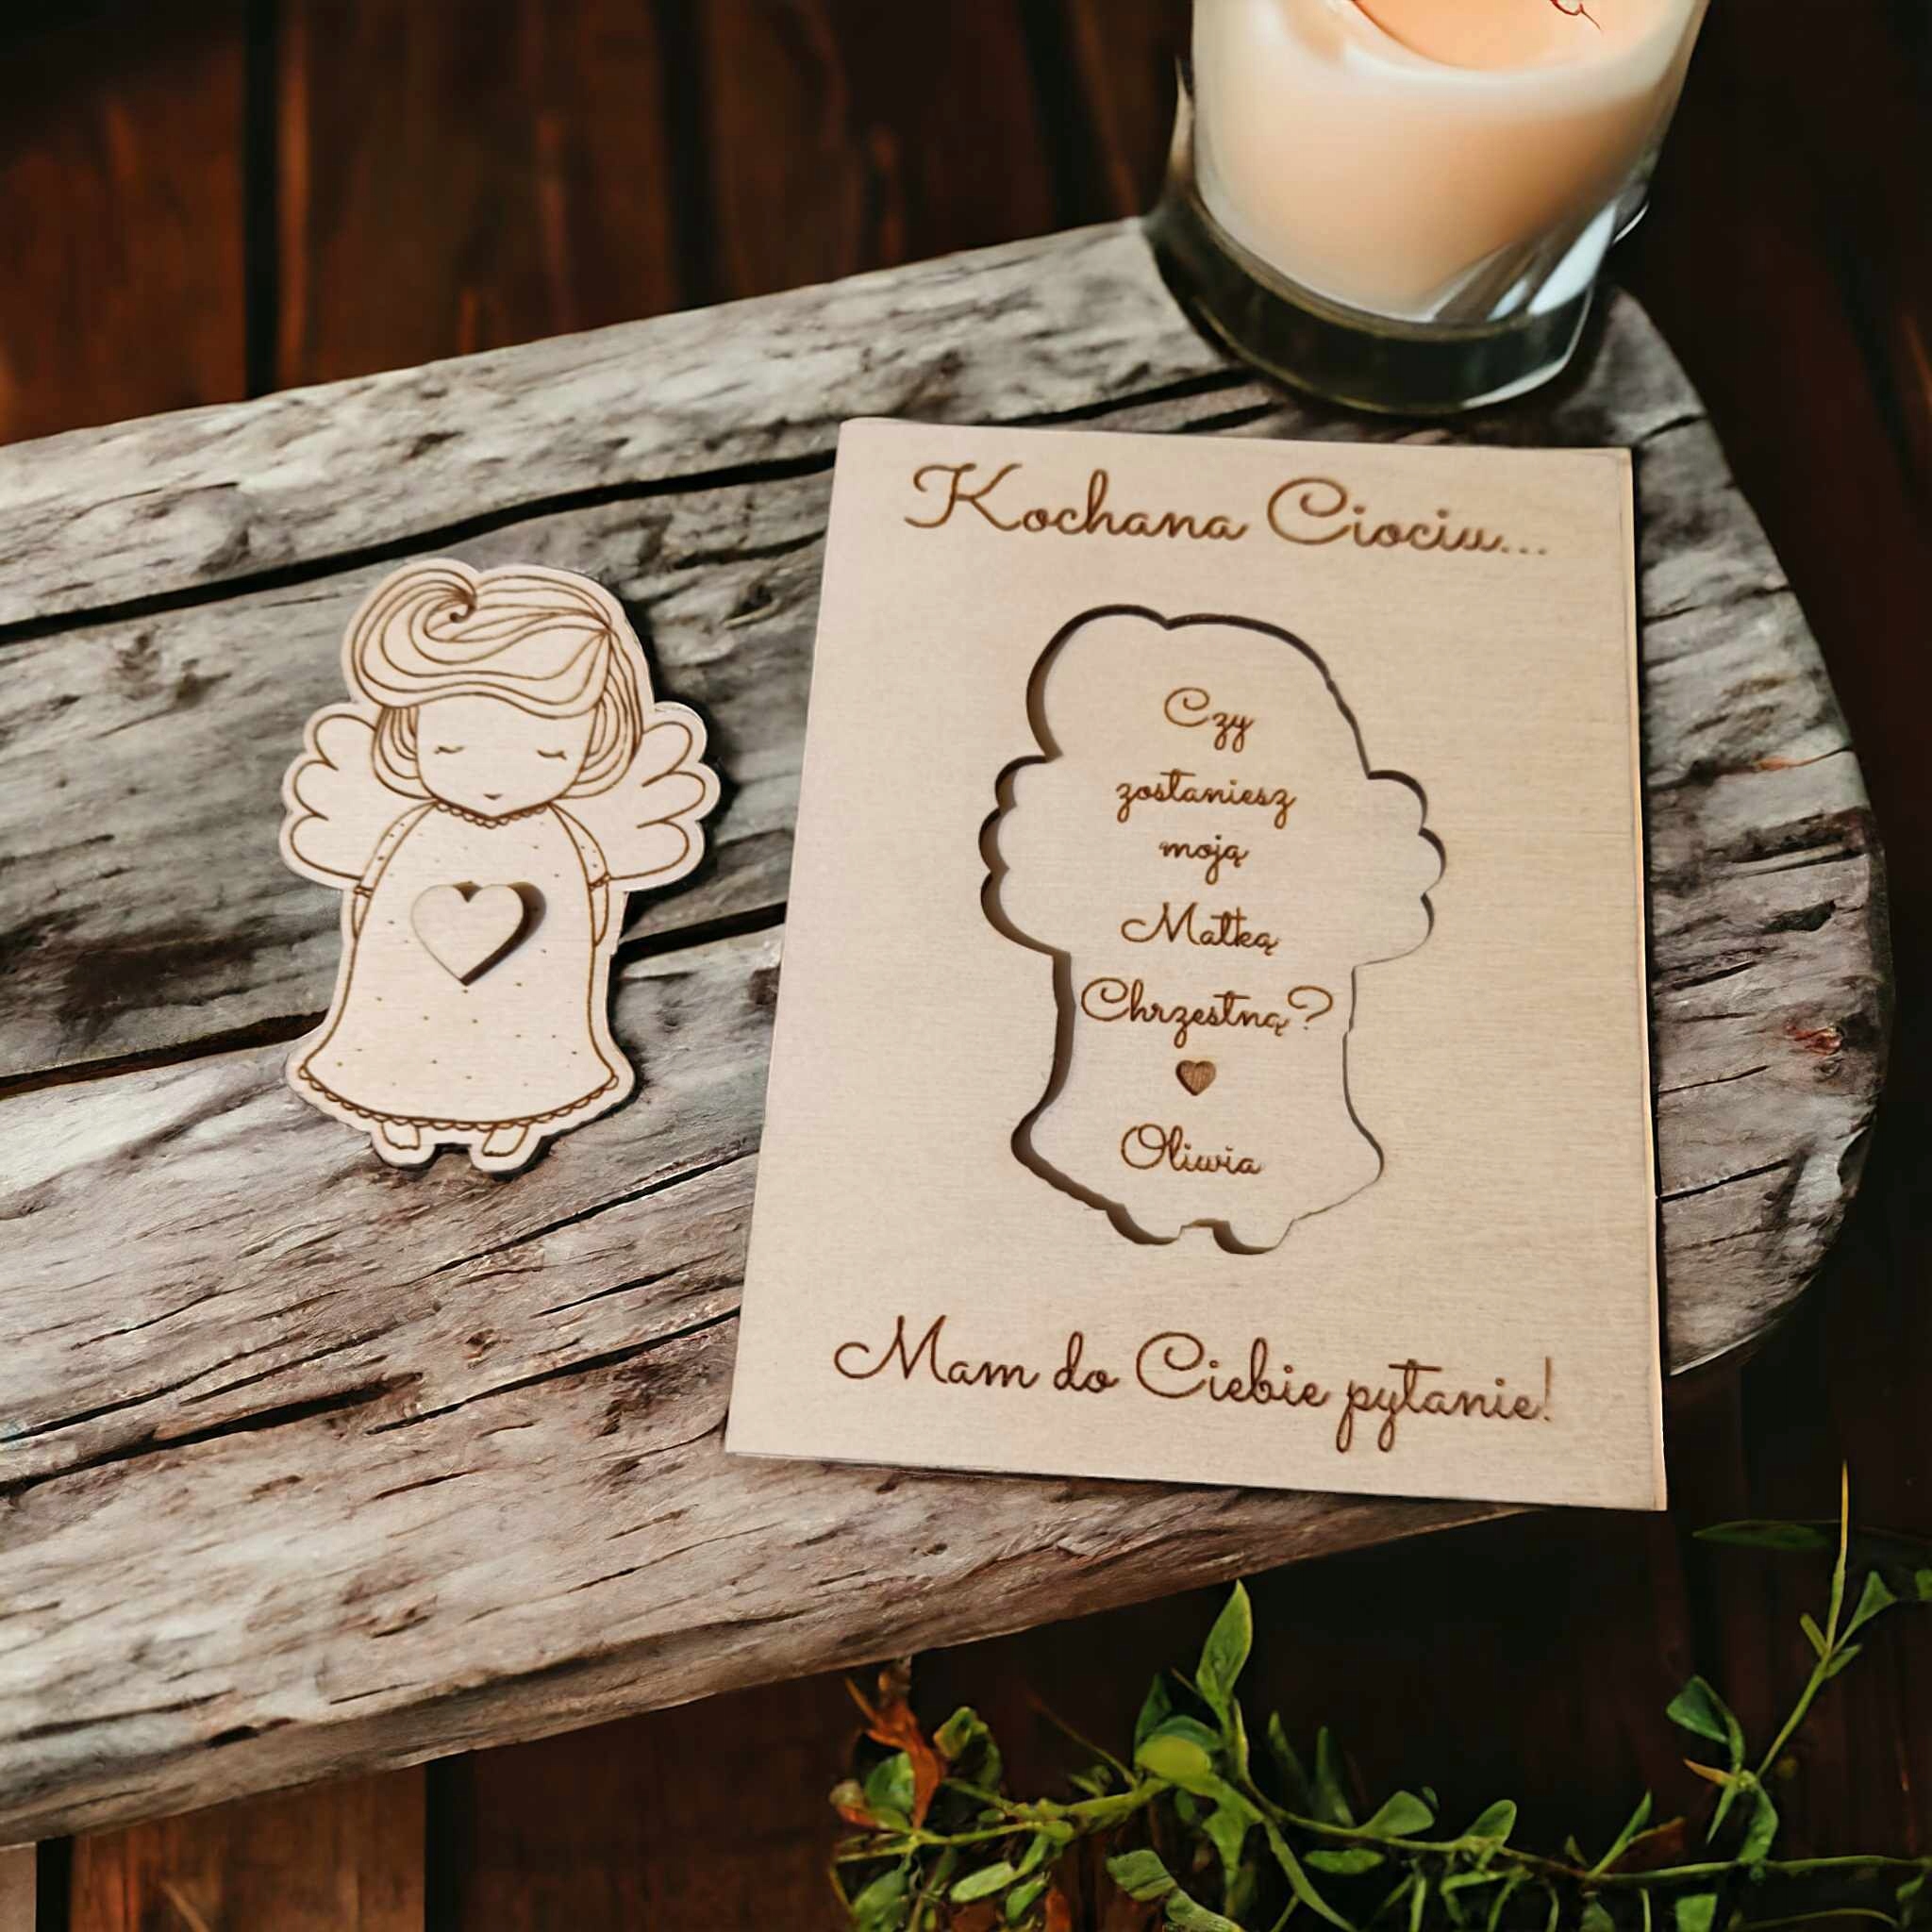 Kochana Ciociu...
Czy
zostaniesz
moją
Matką
Chrzestną?
Oliwia
Mam do Ciebie pytanie!